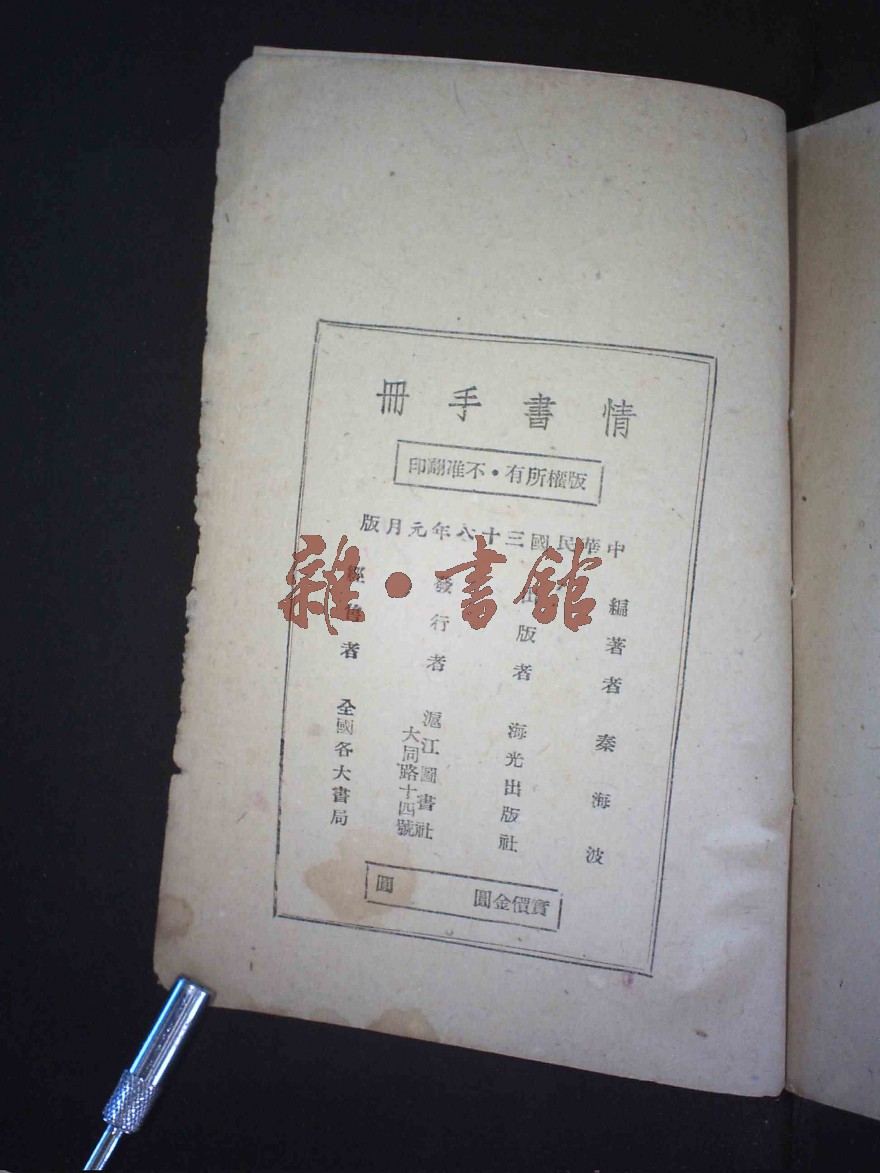 情書手冊
版權所有·不准翻印
中華民國三十八年元月版
編著者 秦海波
出版者 海光出版社
發行者 滬江圖書社
大同路十四號
經售者 全國各大書局
實價金圓 圓
雜·書館